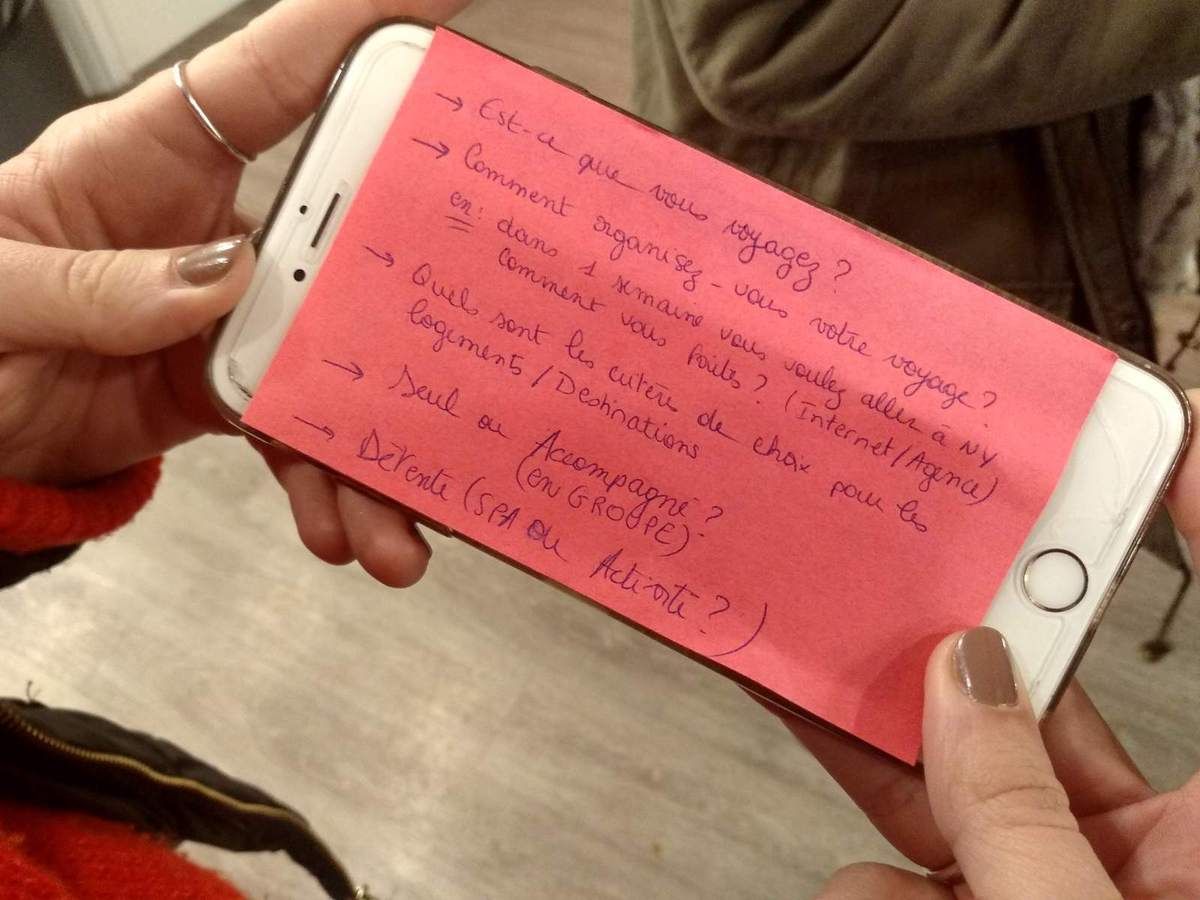 → Est-ce que vous voyagez ?
→ Comment organisez-vous votre voyage ?
ex: dans 1 semaine vous voulez aller à NY
comment vous faites ? (Internet/Agence)
→ Quels sont les critères de choix pour les
logements / Destinations
→ Seul ou Accompagné ?
(EN GROUPE).
→ Détente (SPA ou Activité ? )